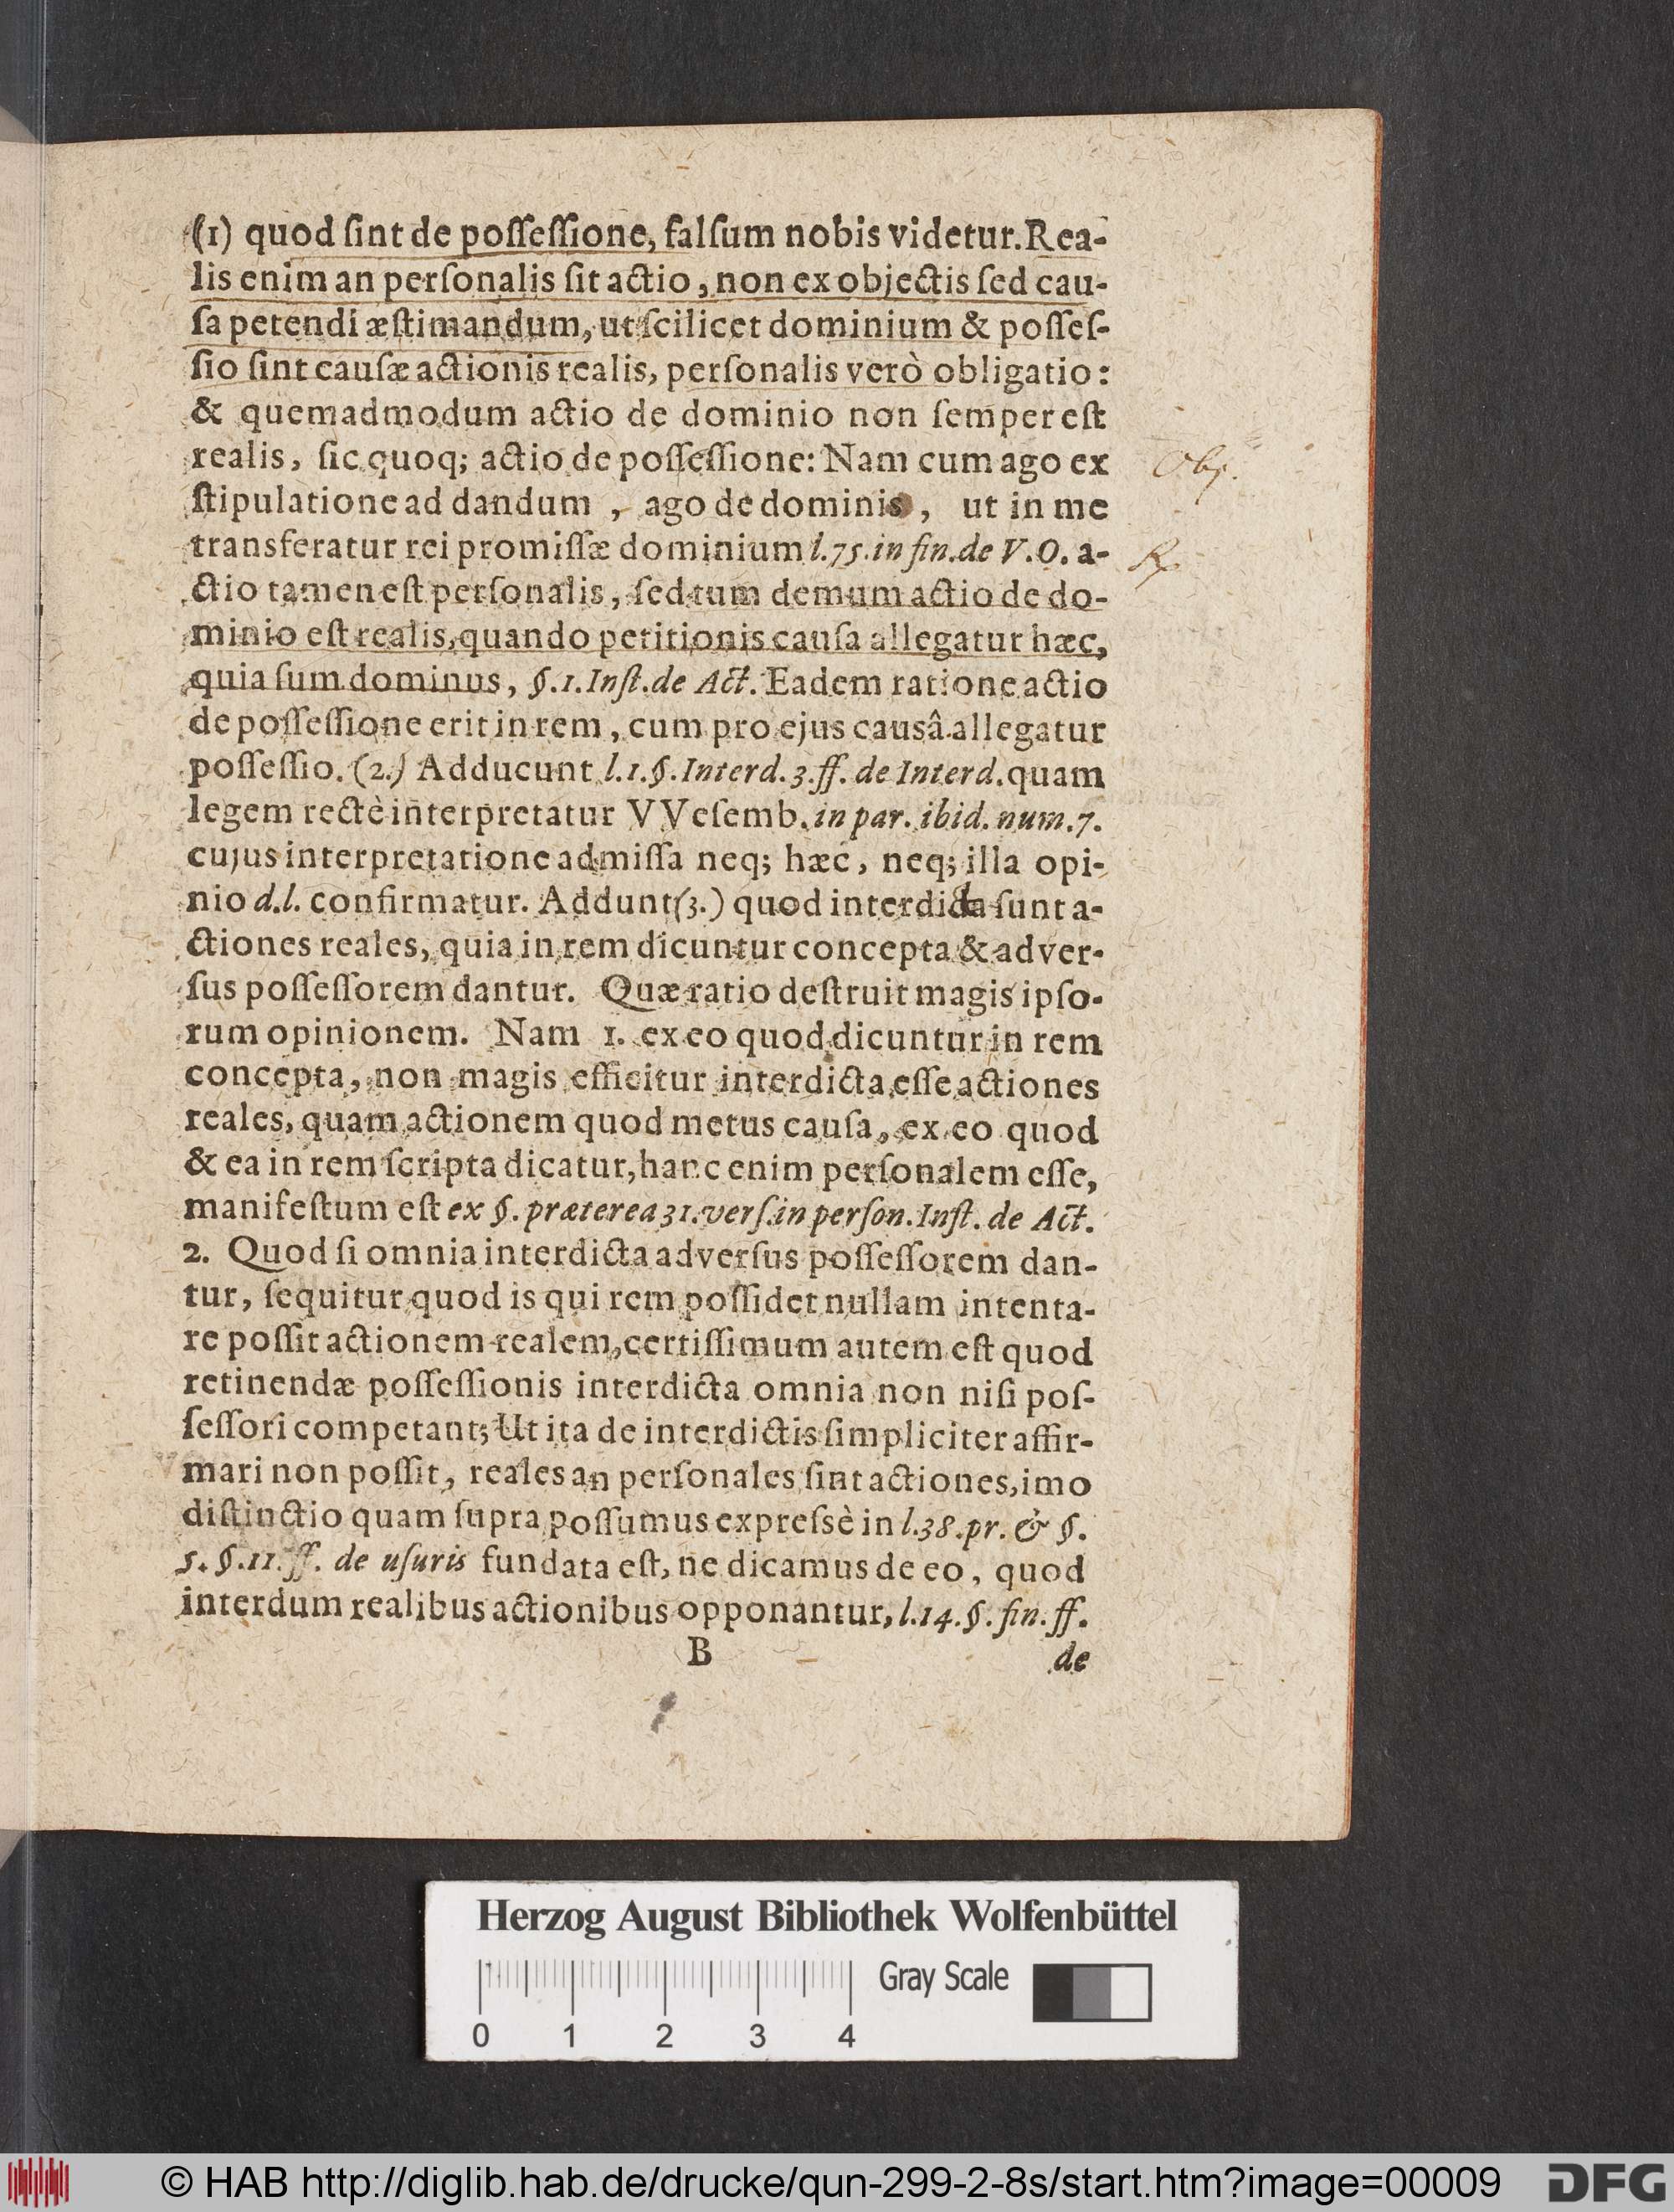 (1) quod ſint de poſſeſſione, falſum nobis videtur. Rea-
lis enim an perſonalis ſit actio, non ex objectis ſed cau-
ſa petendi æſtimandum, ut ſcilicet dominium & poſſeſ-
ſio ſint cauſæ actionis realis, perſonalis verò obligatio:
& quemadmodum actio de dominio non ſemper eſt
realis, ſic quoq; actio de poſſeſſione: Nam cum ago ex
Obj.
ſtipulatione ad dandum, ago de dominis, ut in me
transferatur rei promiſſæ dominium l.75.in fin.de V.O. a-
ctio tamen eſt perſonalis, ſed tum demum actio de do-
minio eſt realis, quando petitionis cauſa allegatur hæc,
quia ſum dominus, §.1.Inſt.de Act. Eadem ratione actio
de poſſeſſione erit in rem, cum pro ejus causâ allegatur
poſſeſſio. (2.) Adducunt l.1.§.Interd.3.ff. de Interd. quam
legem rectè interpretatur VVeſemb. in par. ibid. num.7.
cujus interpretatione admiſſa neq; hæc, neq; illa opi-
nio d.l. confirmatur. Addunt (3.) quod interdicta ſunt a-
ctiones reales, quia in rem dicuntur concepta & adver-
ſus poſſeſſorem dantur. Quæ ratio deſtruit magis ipſo-
rum opinionem. Nam 1. ex eo quod dicuntur in rem
concepta, non magis efficitur interdicta eſſe actiones
reales, quam actionem quod metus cauſa, ex eo quod
& ea in rem ſcripta dicatur, hanc enim perſonalem eſſe,
manifeſtum eſt ex §. præterea 31. verſ. in perſon. Inſt. de Act.
2. Quod ſi omnia interdicta adverſus poſſeſſorem dan-
tur, ſequitur quod is qui rem poſſidet nullam intenta-
re poſſit actionem realem, certiſſimum autem eſt quod
retinendæ poſſeſſionis interdicta omnia non niſi poſ-
ſeſſori competant; Ut ita de interdictis ſimpliciter affir-
mari non poſſit, reales an perſonales ſint actiones, imo
diſtinctio quam ſupra poſſumus expreſsè in l.38.pr. & §.
5. §.11. ff. de uſuris fundata eſt, ne dicamus de eo, quod
interdum realibus actionibus opponantur, l.14.§. fin. ff.
B
de
Herzog August Bibliothek Wolfenbüttel
Gray Scale
0 1 2 3 4
© HAB http://diglib.hab.de/drucke/qun-299-2-8s/start.htm?image=00009
DFG